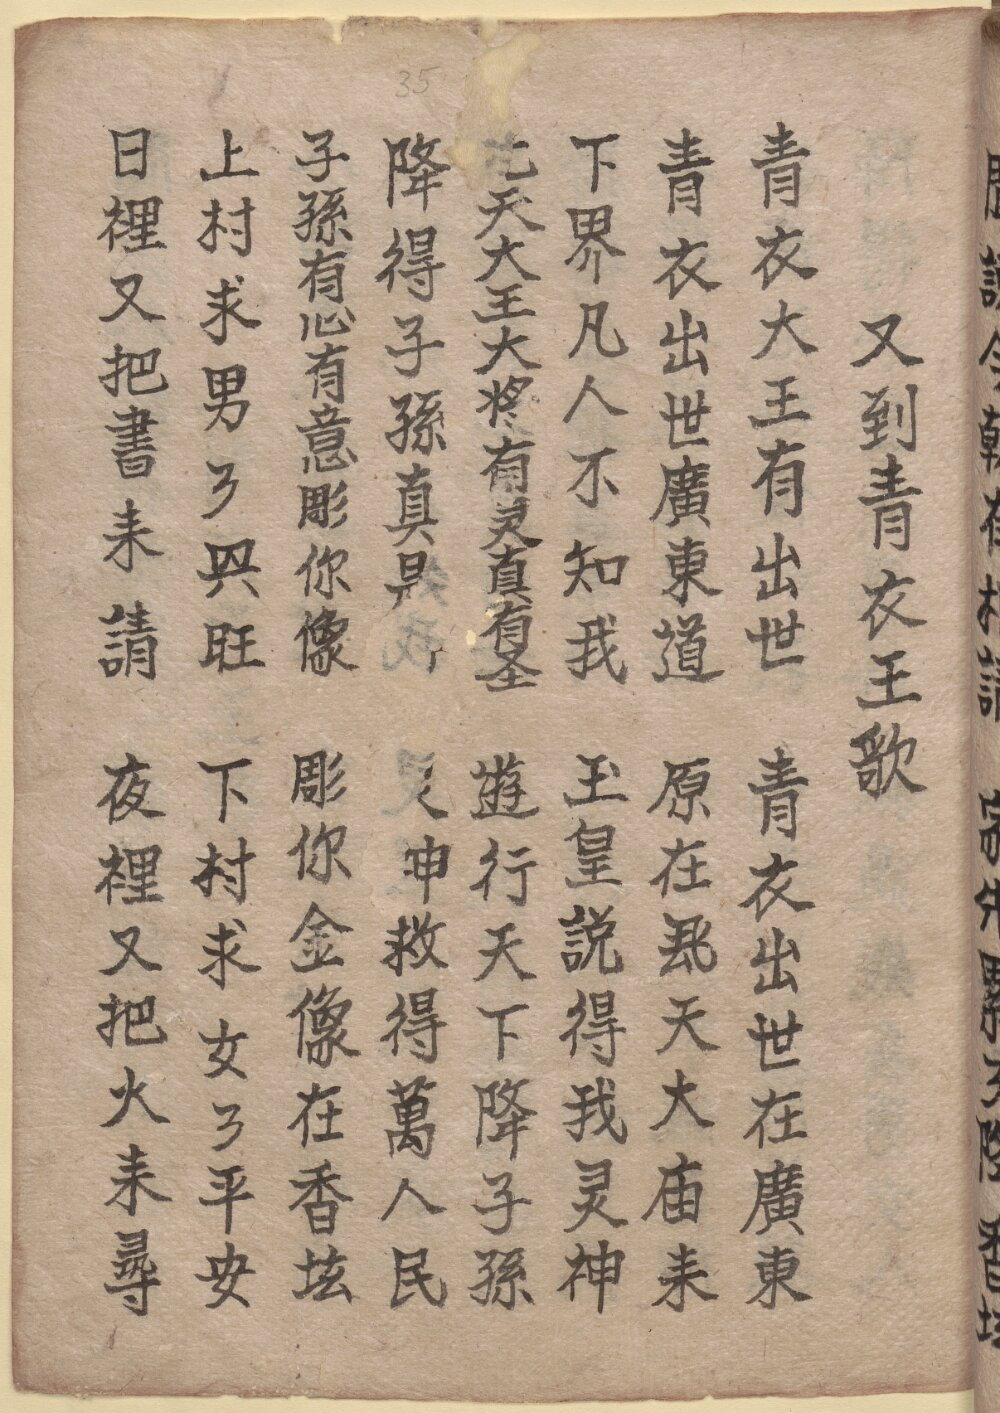 又到青衣王歌
青衣大王有出世 青衣出世在廣東
青衣出世廣東道 原在天大庙耒
下界凡人不知我 玉皇説得我灵神
天大王大将有灵真有圣 遊行天下降子孫
降得子孫真是 灵神救得萬人民
子孫有心有意彫你像 彫你金像在香坛
上村求男了興旺 下村求女了平安
日裡又把書耒請 夜裡又把火耒尋